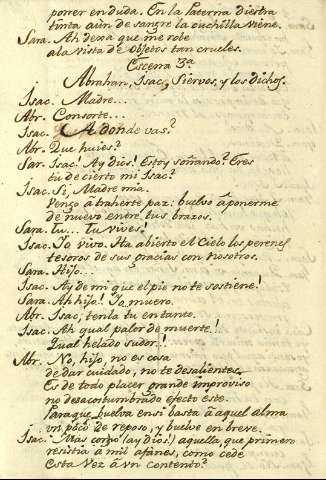 poner en duda. Con la sacra diestra
tinta aún de sangre la cuchilla viene.
Sara. Ah dexa que me robe
a la vista de objetos tan crueles.
Escena 3ª
Abrahan, Isac, Siervos, y los dichos.
Isac. Madre...
Abr. Consorte...
Isac. A donde vas?
Abr. Que huies?
Sar. Isac! Ay Dios! Estoy soñando? Eres
tu de cierto mi Isac?
Isac. Si, Madre mia.
Vengo â traherte paz: buelvo â ponerme
de nuevo entre tus brazos.
Sara. Tu... Tu vives!
Isac. Io vivo. Ha abierto el Cielo los perenes
tesoros de sus gracias con nosotros.
Sara. Hijo...
Isac. Ay de mi que el pie no te sostiene!
Sara. Ah hijo! Io muero.
Abr. Isac, tenla tu en tanto.
Isac. Ah qual palor de muerte!
Qual helado sudor!
Abr. No, hijo, no es cosa
de dar cuidado, no te desalientes
Es de todo placer grande improviso
no desacostumbrado efecto este.
Para que buelva en si basta â aquel alma
un poco de reposo, y buelve en breve.
Isac. Mas como (ay dios!) aquella, que primero
resistia â mil afanes, como cede
esta vez â un contento?